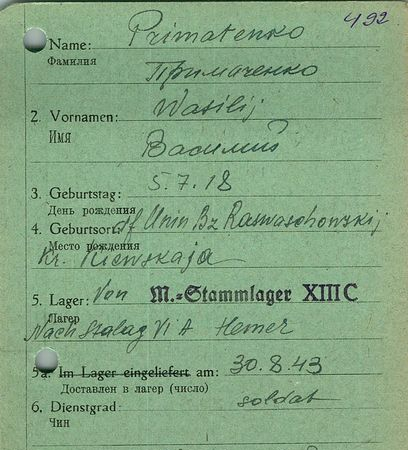 492
Name: Primatenko
Фамилия Примаченко
2. Vornamen: Wasilij
Имя Василий
3. Geburtstag: 5.7.18
День рождения
4. Geburtsort: Bz
Место рождения
Kr. Kiewskaja
5. Lager: Von M.-Stammlager XIII C
Лагерь
Nach Stalag VI A Hemer
5a. Im Lager eingeliefert am: 30.8.43
Доставлен в лагерь (число)
6. Dienstgrad: soldat
Чин